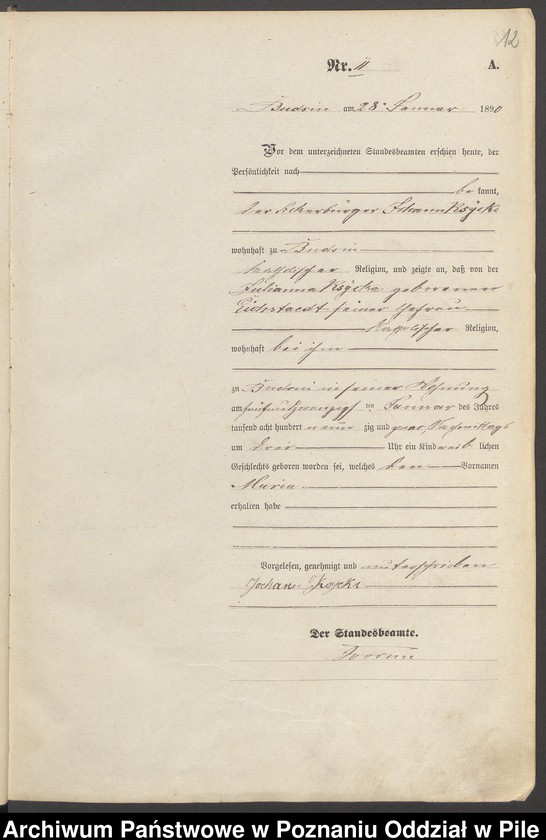 12
Nr. 11 A.
Budsin am 28. Januar 1890
Vor dem unterzeichneten Standesbeamten erschien heute, der
Persönlichkeit nach
be kannt,
der Ackerbürger Johann Ksycki
wohnhaft zu Budsin
katholischer Religion, und zeigte an, daß von der
Julianna Ksycka geborenen
seiner Ehefrau
katholischer Religion,
wohnhaft bei ihm
zu Budsin in seiner Wohnung
am fünfundzwanzigsten Januar des Jahres
tausend acht hundert neun zig und zwar Nachmittags
um drei Uhr ein Kind weib lichen
Geschlechts geboren worden sei, welches den Vornamen
Maria
erhalten habe
Vorgelesen, genehmigt und unterschrieben
Johann Ksycki
Der Standesbeamte.
Archiwum Państwowe w Poznaniu Oddział w Pile